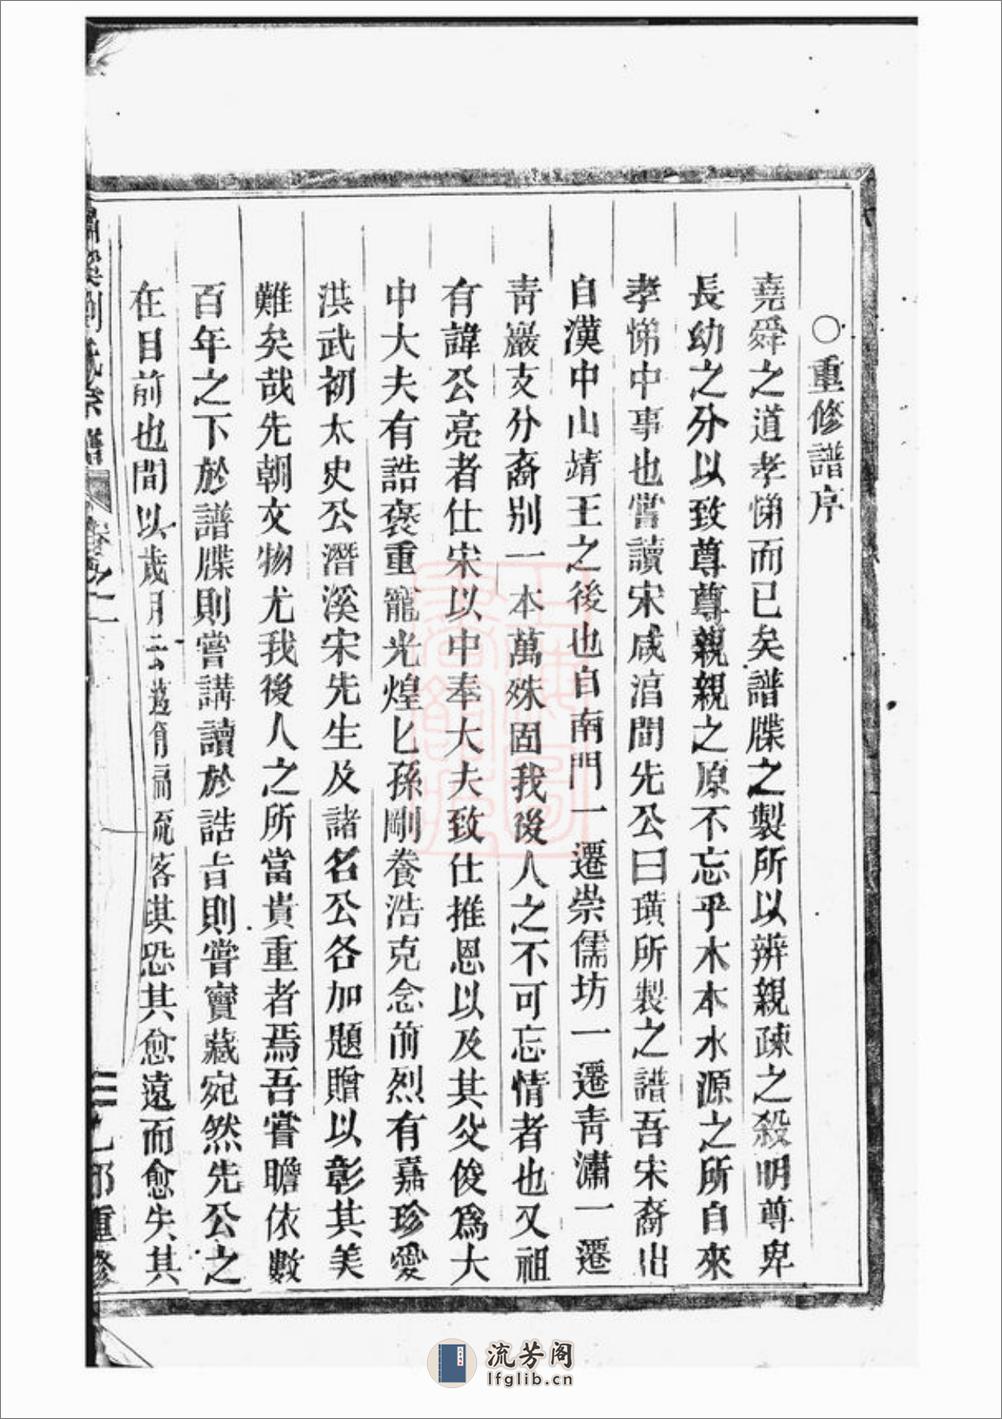 ○重修譜序
堯舜之道孝悌而已矣譜牒之製所以辨親疎之殺明尊卑
長幼之分以致尊尊親親之原不忘乎木本水源之所自來
孝悌中事也嘗讀宋咸淳間先公曰璜所製之譜吾宋裔出
自漢中山靖王之後也自南門一遷崇儒坊一遷青瀟一遷
青巖支分裔别一本萬殊固我後人之不可忘情者也又祖
有諱公亮者仕宋以中奉大夫致仕推恩以及其父俊爲大
中大夫有誥褒重寵光煌匕孫剛養浩克念前烈有嘉珍愛
洪武初太史公潛溪宋先生及諸名公各加題贈以彰其美
難矣哉先朝文物尤我後人之所當貴重者焉吾嘗瞻依數
百年之下於譜牒則嘗講讀於誥旨則嘗寶藏宛然先公之
在目前也間以歲月云
恐其愈遠而愈失其
劉氏宗譜 卷之一 三 乙卯重修
流芳阁
lfglib.cn